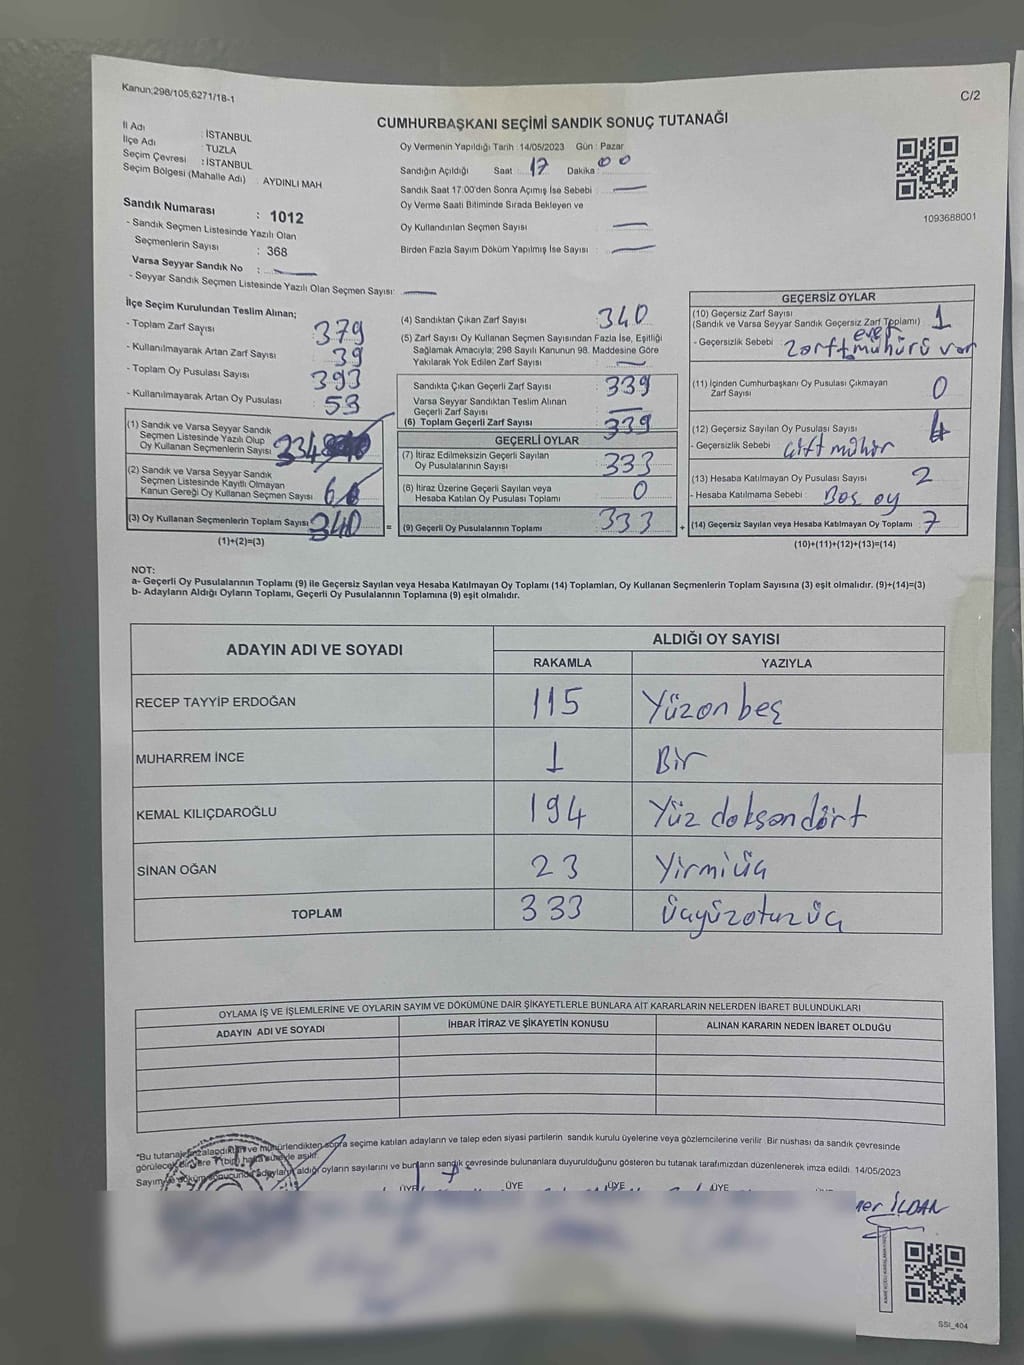 Kanun;298/105,6271/18-1
C/2
CUMHURBAŞKANI SEÇİMİ SANDIK SONUÇ TUTANAĞI
İl Adı : İSTANBUL
İlçe Adı : TUZLA
Seçim Çevresi : İSTANBUL
Seçim Bölgesi (Mahalle Adı) : AYDINLI MAH
Sandık Numarası : 1012
- Sandık Seçmen Listesinde Yazılı Olan
Seçmenlerin Sayısı : 368
Varsa Seyyar Sandık No :
- Seyyar Sandık Seçmen Listesinde Yazılı Olan Seçmen Sayısı:
Oy Vermenin Yapıldığı Tarih : 14/05/2023 Gün : Pazar
Sandığın Açıldığı Saat : 17 Dakika : 00
Sandık Saat 17:00'den Sonra Açımış İse Sebebi :
Oy Verme Saati Bitiminde Sırada Bekleyen ve
Oy Kullandırılan Seçmen Sayısı :
Birden Fazla Sayım Döküm Yapılmış İse Sayısı :
1093688001
İlçe Seçim Kurulundan Teslim Alınan;
- Toplam Zarf Sayısı 379
- Kullanılmayarak Artan Zarf Sayısı 39
- Toplam Oy Pusulası Sayısı 393
- Kullanılmayarak Artan Oy Pusulası 53
(1) Sandık ve Varsa Seyyar Sandık
Seçmen Listesinde Yazılı Olup
Oy Kullanan Seçmenlerin Sayısı 334
(2) Sandık ve Varsa Seyyar Sandık
Seçmen Listesinde Kayıtlı Olmayan
Kanun Gereği Oy Kullanan Seçmen Sayısı 6
(3) Oy Kullanan Seçmenlerin Toplam Sayısı 340
(1)+(2)=(3)
=
(4) Sandıktan Çıkan Zarf Sayısı : 340
(5) Zarf Sayısı Oy Kullanan Seçmen Sayısından Fazla İse, Eşitliği
Sağlamak Amacıyla; 298 Sayılı Kanunun 98. Maddesine Göre
Yakılarak Yok Edilen Zarf Sayısı :
Sandıkta Çıkan Geçerli Zarf Sayısı : 339
Varsa Seyyar Sandıktan Teslim Alınan
Geçerli Zarf Sayısı :
(6) Toplam Geçerli Zarf Sayısı : 339
GEÇERLİ OYLAR
(7) İtiraz Edilmeksizin Geçerli Sayılan
Oy Pusulalarının Sayısı : 333
(8) İtiraz Üzerine Geçerli Sayılan veya
Hesaba Katılan Oy Pusulası Toplamı : 0
(9) Geçerli Oy Pusulalarının Toplamı : 333
+
GEÇERSİZ OYLAR
(10) Geçersiz Zarf Sayısı
(Sandık ve Varsa Seyyar Sandık Geçersiz Zarf Toplamı) : 1
- Geçersizlik Sebebi : zarfta evet mühürü var
(11) İçinden Cumhurbaşkanı Oy Pusulası Çıkmayan
Zarf Sayısı : 0
(12) Geçersiz Sayılan Oy Pusulası Sayısı : 4
- Geçersizlik Sebebi : Çift mühür
(13) Hesaba Katılmayan Oy Pusulası Sayısı : 2
- Hesaba Katılmama Sebebi : Boş oy
(14) Geçersiz Sayılan veya Hesaba Katılmayan Oy Toplamı : 7
(10)+(11)+(12)+(13)=(14)
NOT:
a- Geçerli Oy Pusulalarının Toplamı (9) ile Geçersiz Sayılan veya Hesaba Katılmayan Oy Toplamı (14) Toplamları, Oy Kullanan Seçmenlerin Toplam Sayısına (3) eşit olmalıdır. (9)+(14)=(3)
b- Adayların Aldığı Oyların Toplamı, Geçerli Oy Pusulalarının Toplamına (9) eşit olmalıdır.
ADAYIN ADI VE SOYADI
ALDIĞI OY SAYISI
RAKAMLA YAZIYLA
RECEP TAYYİP ERDOĞAN 115 Yüzonbeş
MUHARREM İNCE 1 Bir
KEMAL KILIÇDAROĞLU 194 Yüz doksandört
SİNAN OĞAN 23 Yirmiüç
TOPLAM 333 üçyüzotuzüç
OYLAMA İŞ VE İŞLEMLERİNE VE OYLARIN SAYIM VE DÖKÜMÜNE DAİR ŞİKAYETLERLE BUNLARA AİT KARARLARIN NELERDEN İBARET BULUNDUKLARI
ADAYIN ADI VE SOYADI İHBAR İTİRAZ VE ŞİKAYETİN KONUSU ALINAN KARARIN NEDEN İBARET OLDUĞU
"Bu tutanak imzalandıktan ve mühürlendikten sopra seçime katılan adayların ve talep eden siyasi partilerin sandık kurulu üyelerine veya gözlemcilerine verilir. Bir nushası da sandık çevresinde
görülecek bir yere 7 (bir) hafta süreyle asılır.
Sayım ve döküm sonucunda adayların aldığı oyların sayılarını ve bunların sandık çevresinde bulunanlara duyurulduğunu gösteren bu tutanak tarafımızdan düzenlenerek imza edildi. 14/05/2023
ÜYE ÜYE ÜYE ÜYE
SSI_404